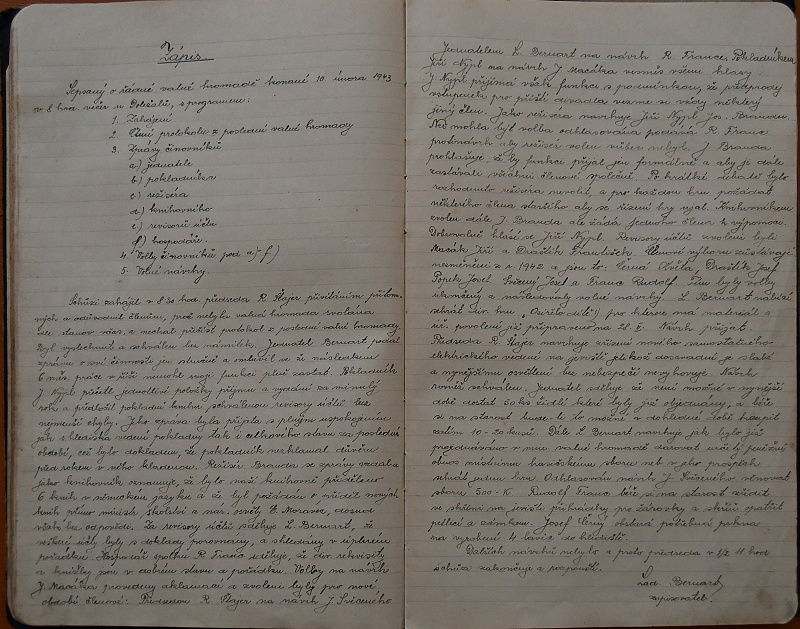 Zápis
Sepsaný o řádné valné hromadě konané 10. února 1943
v 8 hod. večer u Doležalů, s programem:
1. Zahájení
2. Čtení protokolu z poslední valné hromady
3. Zprávy činovníků
a) jednatele
b) pokladníka
c) režiséra
d) knihovního
e) revisorů účtů
f) hospodáře.
4. Volby činovníků pod a)-f)
5. Volné návrhy.
Schůzi zahájil v 8 30 hod předseda R. Štajer přivítáním přítom-
ných a odůvodnil členům, proč nebyla valná hromada svolána
dle stanov včas, a nechal přečíst protokol z poslední valné hromady.
Byl vyslechnut a schválen bez námitek. Jednatel Bernart podal
zprávu o své činnosti jen stručně a omluvil se že následkem
6 měs. práce v říši nemohl svoji funkci plně zastat. Pokladník
J. Nýpl přečetl jednotlivé položky příjmu a vydání za minulý
rok a předložil pokladní knihu, schválenou revisory účtů bez
nejmenší chyby. Jeho zpráva byla přijata s plným uspokojením
jak s hlediska vedení pokladny tak i celkového stavu za poslední
období, což bylo dokladem, že pokladník nezklamal důvěru
před rokem v něho kladenou. Režisér Brauda se zprávy vzdal a
jako knihovník oznamuje, že bylo naší knihovně přiděleno
6 knih v německém jazyku a že byl požádán o příděl nových
knih přímo ministr školství a nár. osvěty E. Moravec, dosud
však bez odpovědi. Za revisory účtů sděluje L. Bernart, že
veškeré účty byly s doklady porovnány, a shledány v úplném
pořádku. Hospodář spolku R. Franc sděluje, že div. rekvisity
a knížky jsou v dobrém stavu a pořádku. Volby na návrh
J. Macáka provedeny aklamací a zvoleni byli pro nové
období členové: Předsedou R. Štajer na návrh J. Svíceného
Jednatelem L. Bernart na návrh R. France, Pokladníkem
Jiří Nýpl na návrh J. Macáka vesměs všemi hlasy.
J. Nýpl přijímá však funkci s podmínkou, že předprodej
vstupenek pro příští divadla vezme si vždy některý
jiný člen. Jako režiséra navrhuje Jiří Nýpl Jos. Braudu.
Než mohla být volba odhlasována podává R. Franc
protinávrh aby režisér volen vůbec nebyl. J. Brauda
prohlašuje, že by funkci přijal jen formálně a aby ji dále
zastávali všichni členové společně. Po krátké úvaze bylo
rozhodnuto režiséra nevolit, a pro každou hru požádat
některého člena staršího aby se řízení hry ujal. Knihovníkem
zvolen dále J. Brauda ale žádá jednoho člena k výpomoci.
Dobrovolně hlásí se Jiří Nýpl. Revisory účtů zvoleni byli
Macák Jiří a Draštík František. Členové výboru zůstávají
nezměněni z r. 1942 a jsou to: Černá Květa, Draštík Josef
Popek Josef Svícený Josef a Franc Rudolf. Tím byly volby
ukončeny a následovaly volné návrhy. L. Bernart nabízí
sehrát div. hru „Cizí to dítě“ pro kterou má materiál a
úř. povolení již připraveno na 28. II. Návrh přijat.
Předseda R. Štajer navrhuje zřízení nového samostatného
elektrického vedení na jeviště jelikož dosavadní je slabé
a nynějšímu osvětlení bez nebezpečí nevyhovuje. Návrh
rovněž schválen. Jednatel sděluje že není možné v nynější
době dostat 50 ks židlí které byly již objednány, a béře
si na starost bude-li to možné v dohledné době koupit
zatím 10-20 kusů. Dále L. Bernart navrhuje jak bylo již
projednáváno v min. valné hromadě darovat určitý peněžní
obnos místnímu hasičskému sboru neb v jeho prospěch
sehrát jednu hru. Odhlasován návrh J. Svíceného věnovat
sboru 500-K. Rudolf Franc béře si na starost zřídit
ve skříni na jevišti přihrádky pro žárovky a skříň opatřit
petlicí a zámkem. Josef Černý obstará potřebná prkna
na vyrobení 4 lavic do hlediště.
Dalších návrhů nebylo a proto předseda v 1/2 11 hod
schůzi zakončuje a rozpouští.
Lad. Bernart
zapisovatel.